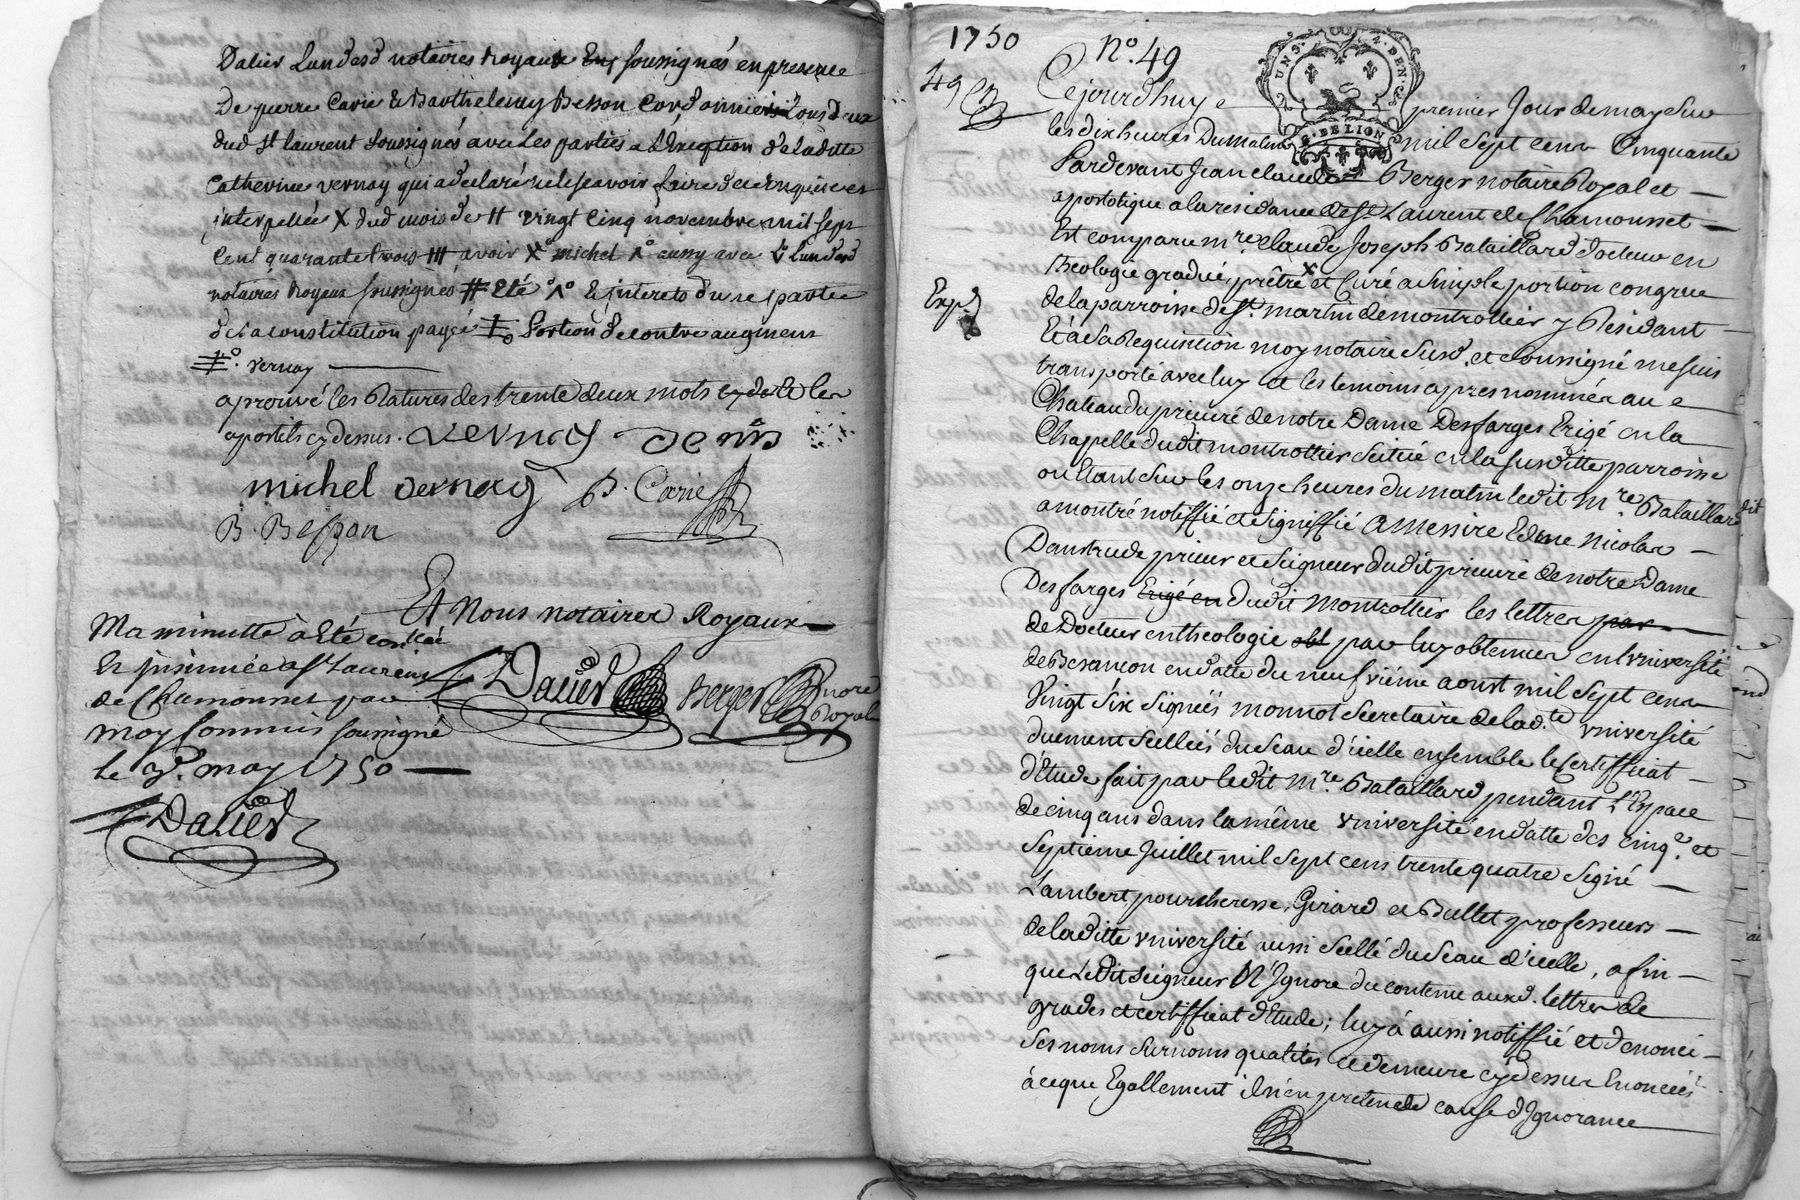 Dalier Lun desd notaires Royaux soussignés en presence
De pierre Carie & Barthelemy Besson Cordonniers tous deux
dud St laurent soussignés avec Les parties a L'exception de laditte
Catherine vernay qui a declaré ne le scavoir faire de ce enquise et
interpellée X dud mois de # vingt cinq novembre mil sept
Cent quarante trois # avoir X michel aussy avec Lun desd
notaires Royaux soussignés # Eté & interets du ne partie
de la constitution payée portion de contre augment
vernay
aprouvé les Ratures des trente deux mots et les
apostils cy dessus. vernay denis
michel vernay P. Carie
B. Besson
Et Nous notaires Royaux
Ma minutte à Eté contlée
Et insinuée a St Laurens
de Chamousset par
moy Commis soussigné
le may 1750
Dalier Berger nore
Royal
Dalier
1750 No. 49
49
UN. S. 4. DEN.
G. DE LION
Cejourdhuy premier Jour de may Sur
les dix heures Du matin mil sept cent Cinquante
Pardevant Jean claude Berger notaire Royal et
apostolique a la residance de St Laurent de Chamousset
Est comparu mre. claude Joseph Bataillard docteur en
theologie gradué, prêtre X et Curé a Simple portion congrue
Exp.d
de la parroisse de St. martin de montrottier y Residant
Et à Sa Requisition moy notaire Susd. et soussigné me suis
transporté avec luy et les temoins apres nommés au
Chateau du prieuré de notre Dame Desfarges Erigé en la
Chapelle dudit montrottier Scitué en la susditte parroisse
ou Etant Sur les onze heures du matin ledit mre. Bataillard dit
a montré notiffié et signiffié a Messire Edme Nicolas
Danstrude prieur et Seigneur dudit prieuré de notre Dame
Desfarges Erigé en dudit Montrottier les lettres par
de Docteur en theologie par luy obtenues en Lvniversité
de Besançon en datte du neufvième aoust mil Sept cent
Vingt Six Signéés monnot Secretaire de lad.te vniversité
duement Scelléés du Seau d'icelle ensemble le Certifficat
d'Etude fait par ledit mre Bataillard pendant L'Espace
de cinq ans dans la même vniversité en datte des cinq.e et
Septième Juillet mil Sept cens trente quatre Signé
Lambert pourcheresse, Girard et Bullet professeurs
de laditte vniversité aussi Scellé du Seau d'icelle, afin
que Ledit Seigneur N'Ignore du contenu auxd. lettres de
grades et certifficat d'Etude; luy à aussi notiffié et denoncé
Ses noms Surnoms qualités et demeure cy dessus Enoncéés
à ce que Egallement il n'en pretende cause d'Ignorance